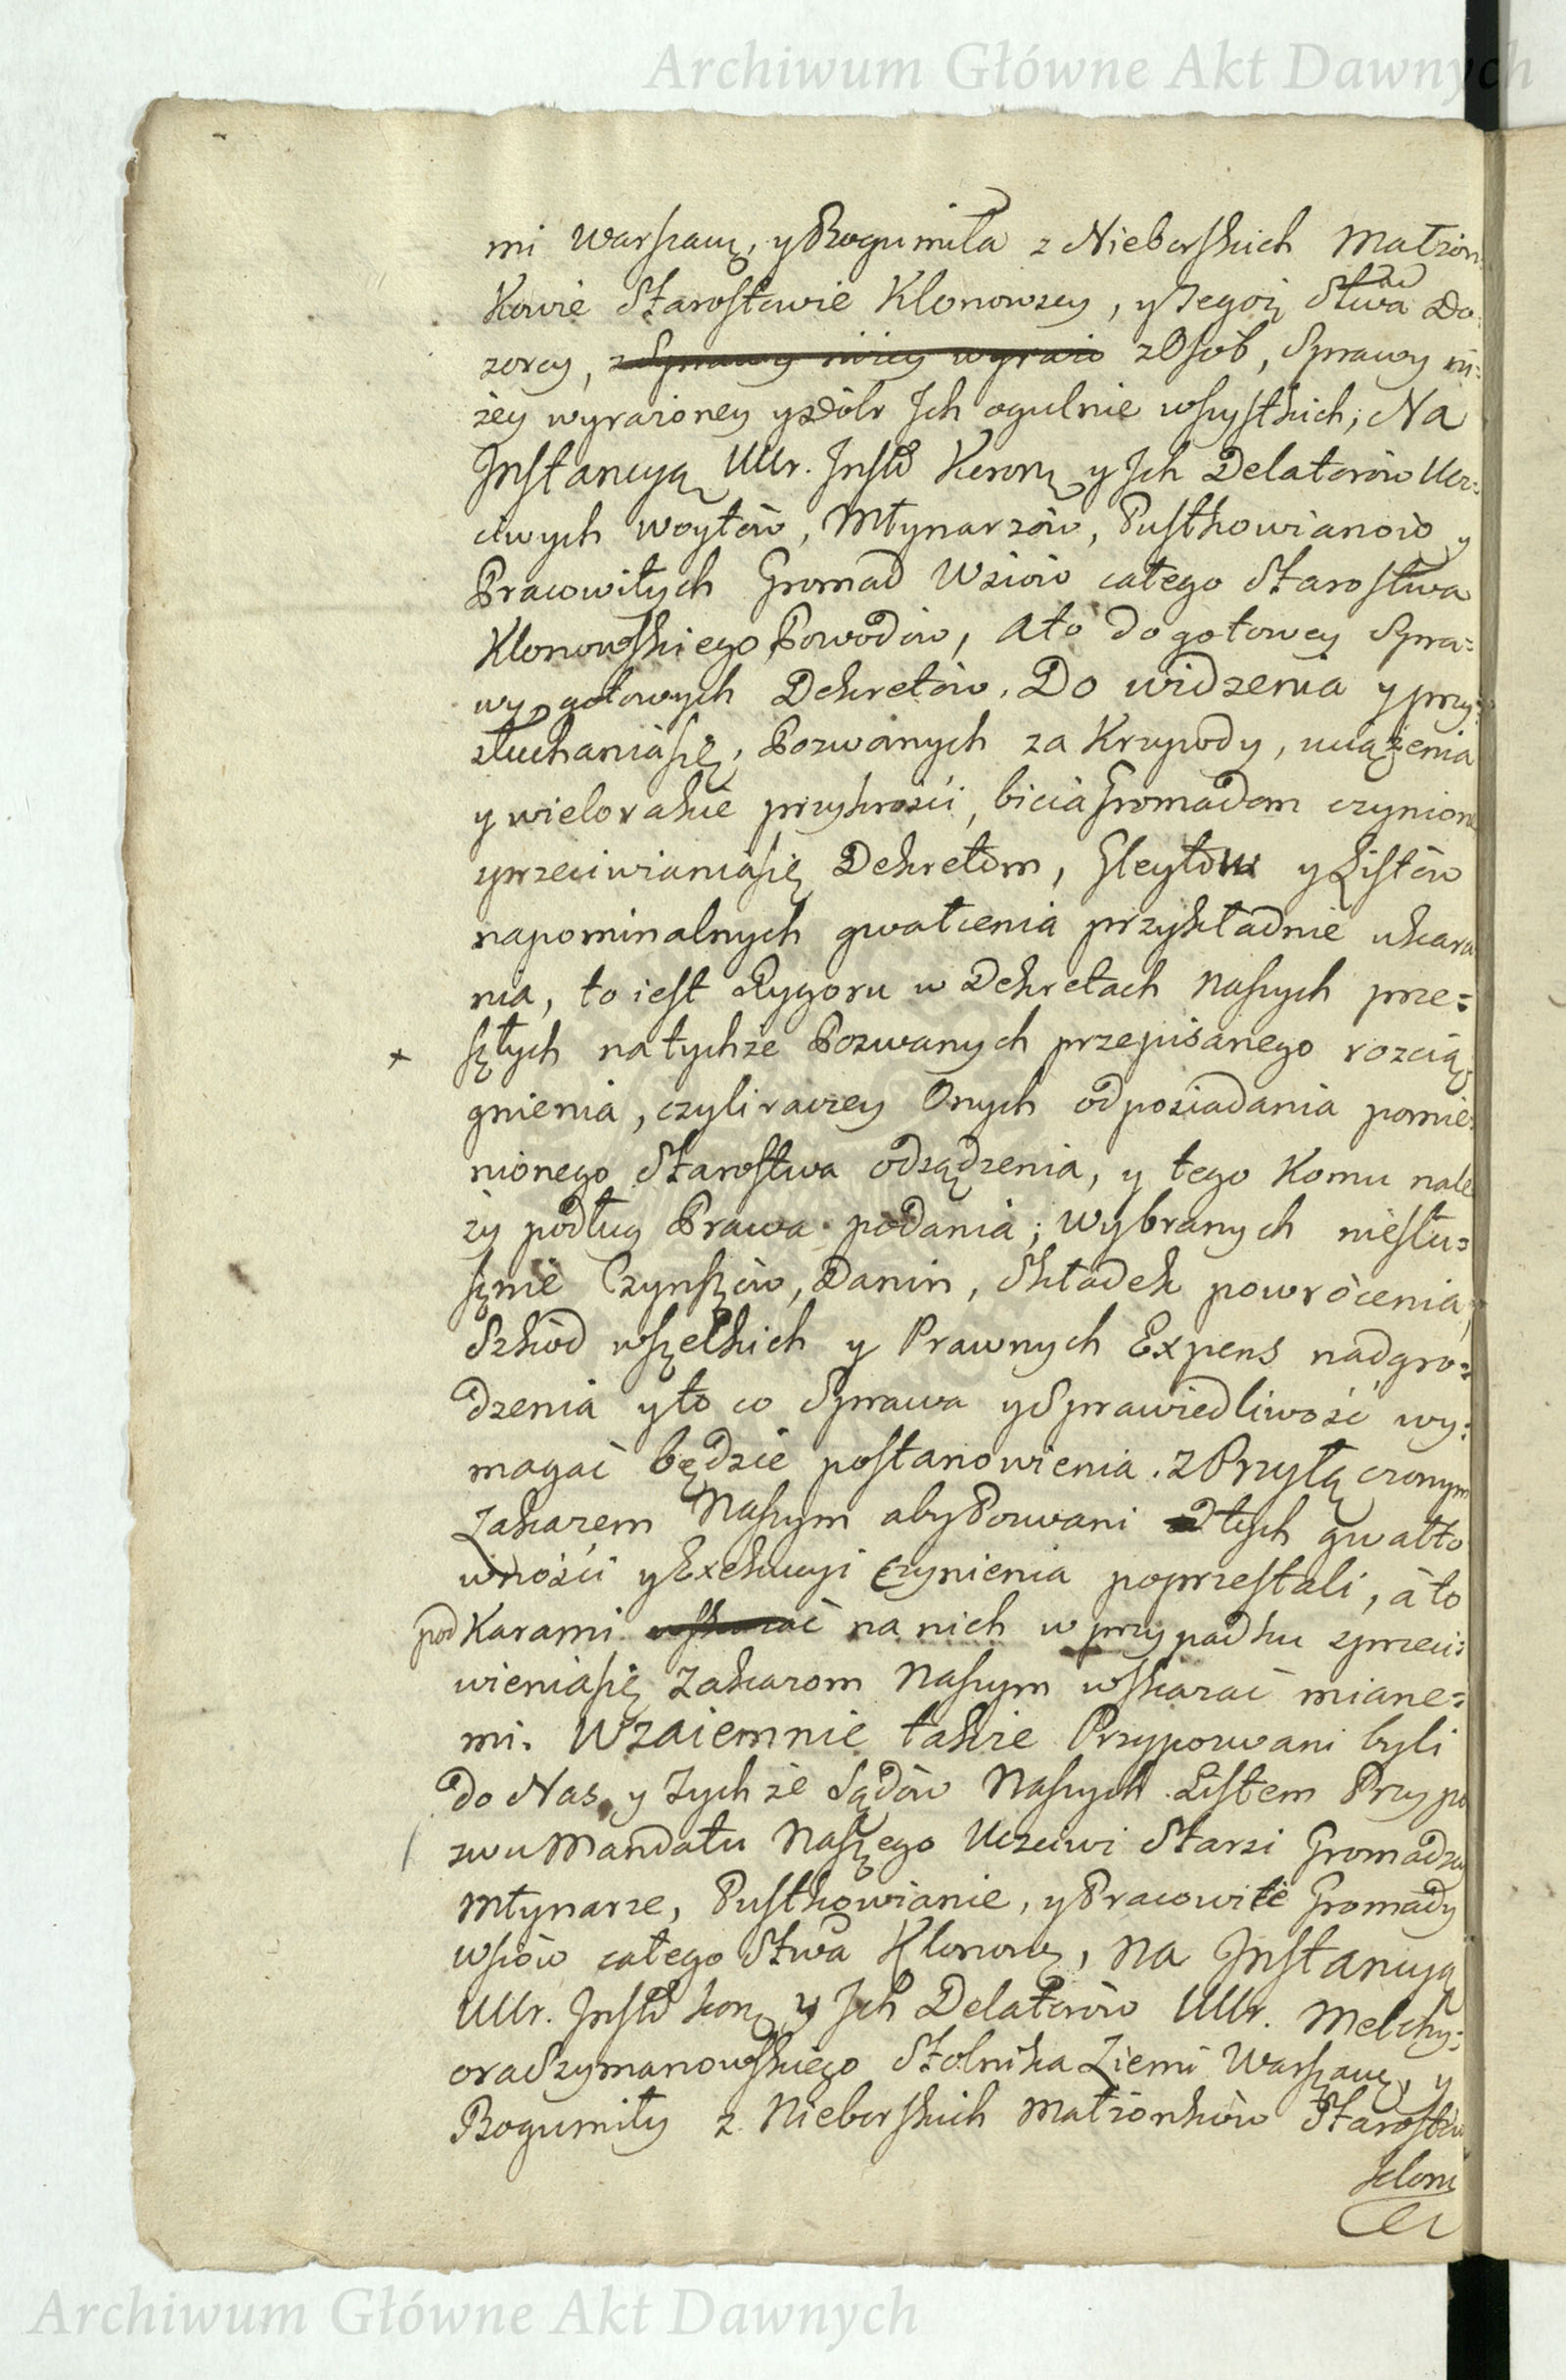 Archiwum Główne Akt Dawnych
mi Warszaw:, y Bogumiła z Nieborskich Małżon:
kowie Starostowie Klonowscy, y Tegoż Stwa Do:
zorcy, z Sprawy niżey wyrażo z Osób, Sprawy ni:
żey wyrażoney y z Dóbr Ich ogulnie wszystkich, Na
Instancyą Ur. Inst Koron: y Ich Delatorów Ucz:
ciwych Woytów, Młynarzów, Pustkowianow y
Pracowitych Gromad Wsiow całego Starostwa
Klonowskiego Powodów, Ato do gotowey Spra=
wy y gotowych Dekretów. Do widzenia y przy:
słuchania się, Pozwanych za Krzywdy, uciążenia
y wielorakie przykrości, bicia Gromadom czynione
sprzeciwiania się Dekretom, Gleytów y Listów
napominalnych gwałcenia przykładnie ukara
nia, to iest Rygoru w Dekretach Naszych prze=
szłych na tychże Pozwanych przepisanego rozcią
gnienia, czyli raczey Onych od posiadania pomie
nionego Starostwa odsądzenia, y tego Komu nale
ży podług Prawa podania; wybranych niesłu=
sznie Czynszów, Danin, Składek powrócenia,
Szkód wszelkich y Prawnych Expens nadgro=
dzenia y to co Sprawa y Sprawiedliwość wy:
magać będzie postanowienia. Z Przyłączonym
Zakazem Naszym aby Pozwani od tych gwałto
wności y Exekucyi czynienia poprzestali, à to
pod Karami wskazać na nich w przypadku sprzeci:
wienia się Zakazom Naszym wskazać miane=
mi. Wzaiemnie także Przypozwani byli
do Nas y Tychże Sądów Naszych Listem Przypo
zwu Mandatu Naszego Uczciwi Starsi Gromadzcy
Młynarze, Pustkowianie, y Pracowite Gromady
wsiów całego Stwa Klonow:, na Instancyą
Ur. Inst kor: y Ich Delatorów Ur. Melchy:
ora Szymanowskiego Stolnika Ziemi Warszaw:, y
Bogumiły z Nieborskich Małżonków Starostów
Klon
Archiwum Główne Akt Dawnych